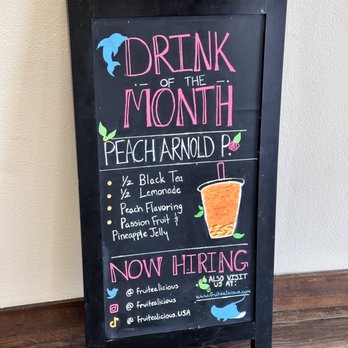 DRINK
OF THE
MONTH
PEACH ARNOLD P.
½ Black Tea
½ Lemonade
Peach Flavoring
Passion Fruit &
Pineapple Jelly
NOW HIRING
@ fruitealicious
@ fruitealicious
@ fruitealicious.USA
ALSO VISIT
US AT!
www.fruitealicious.com